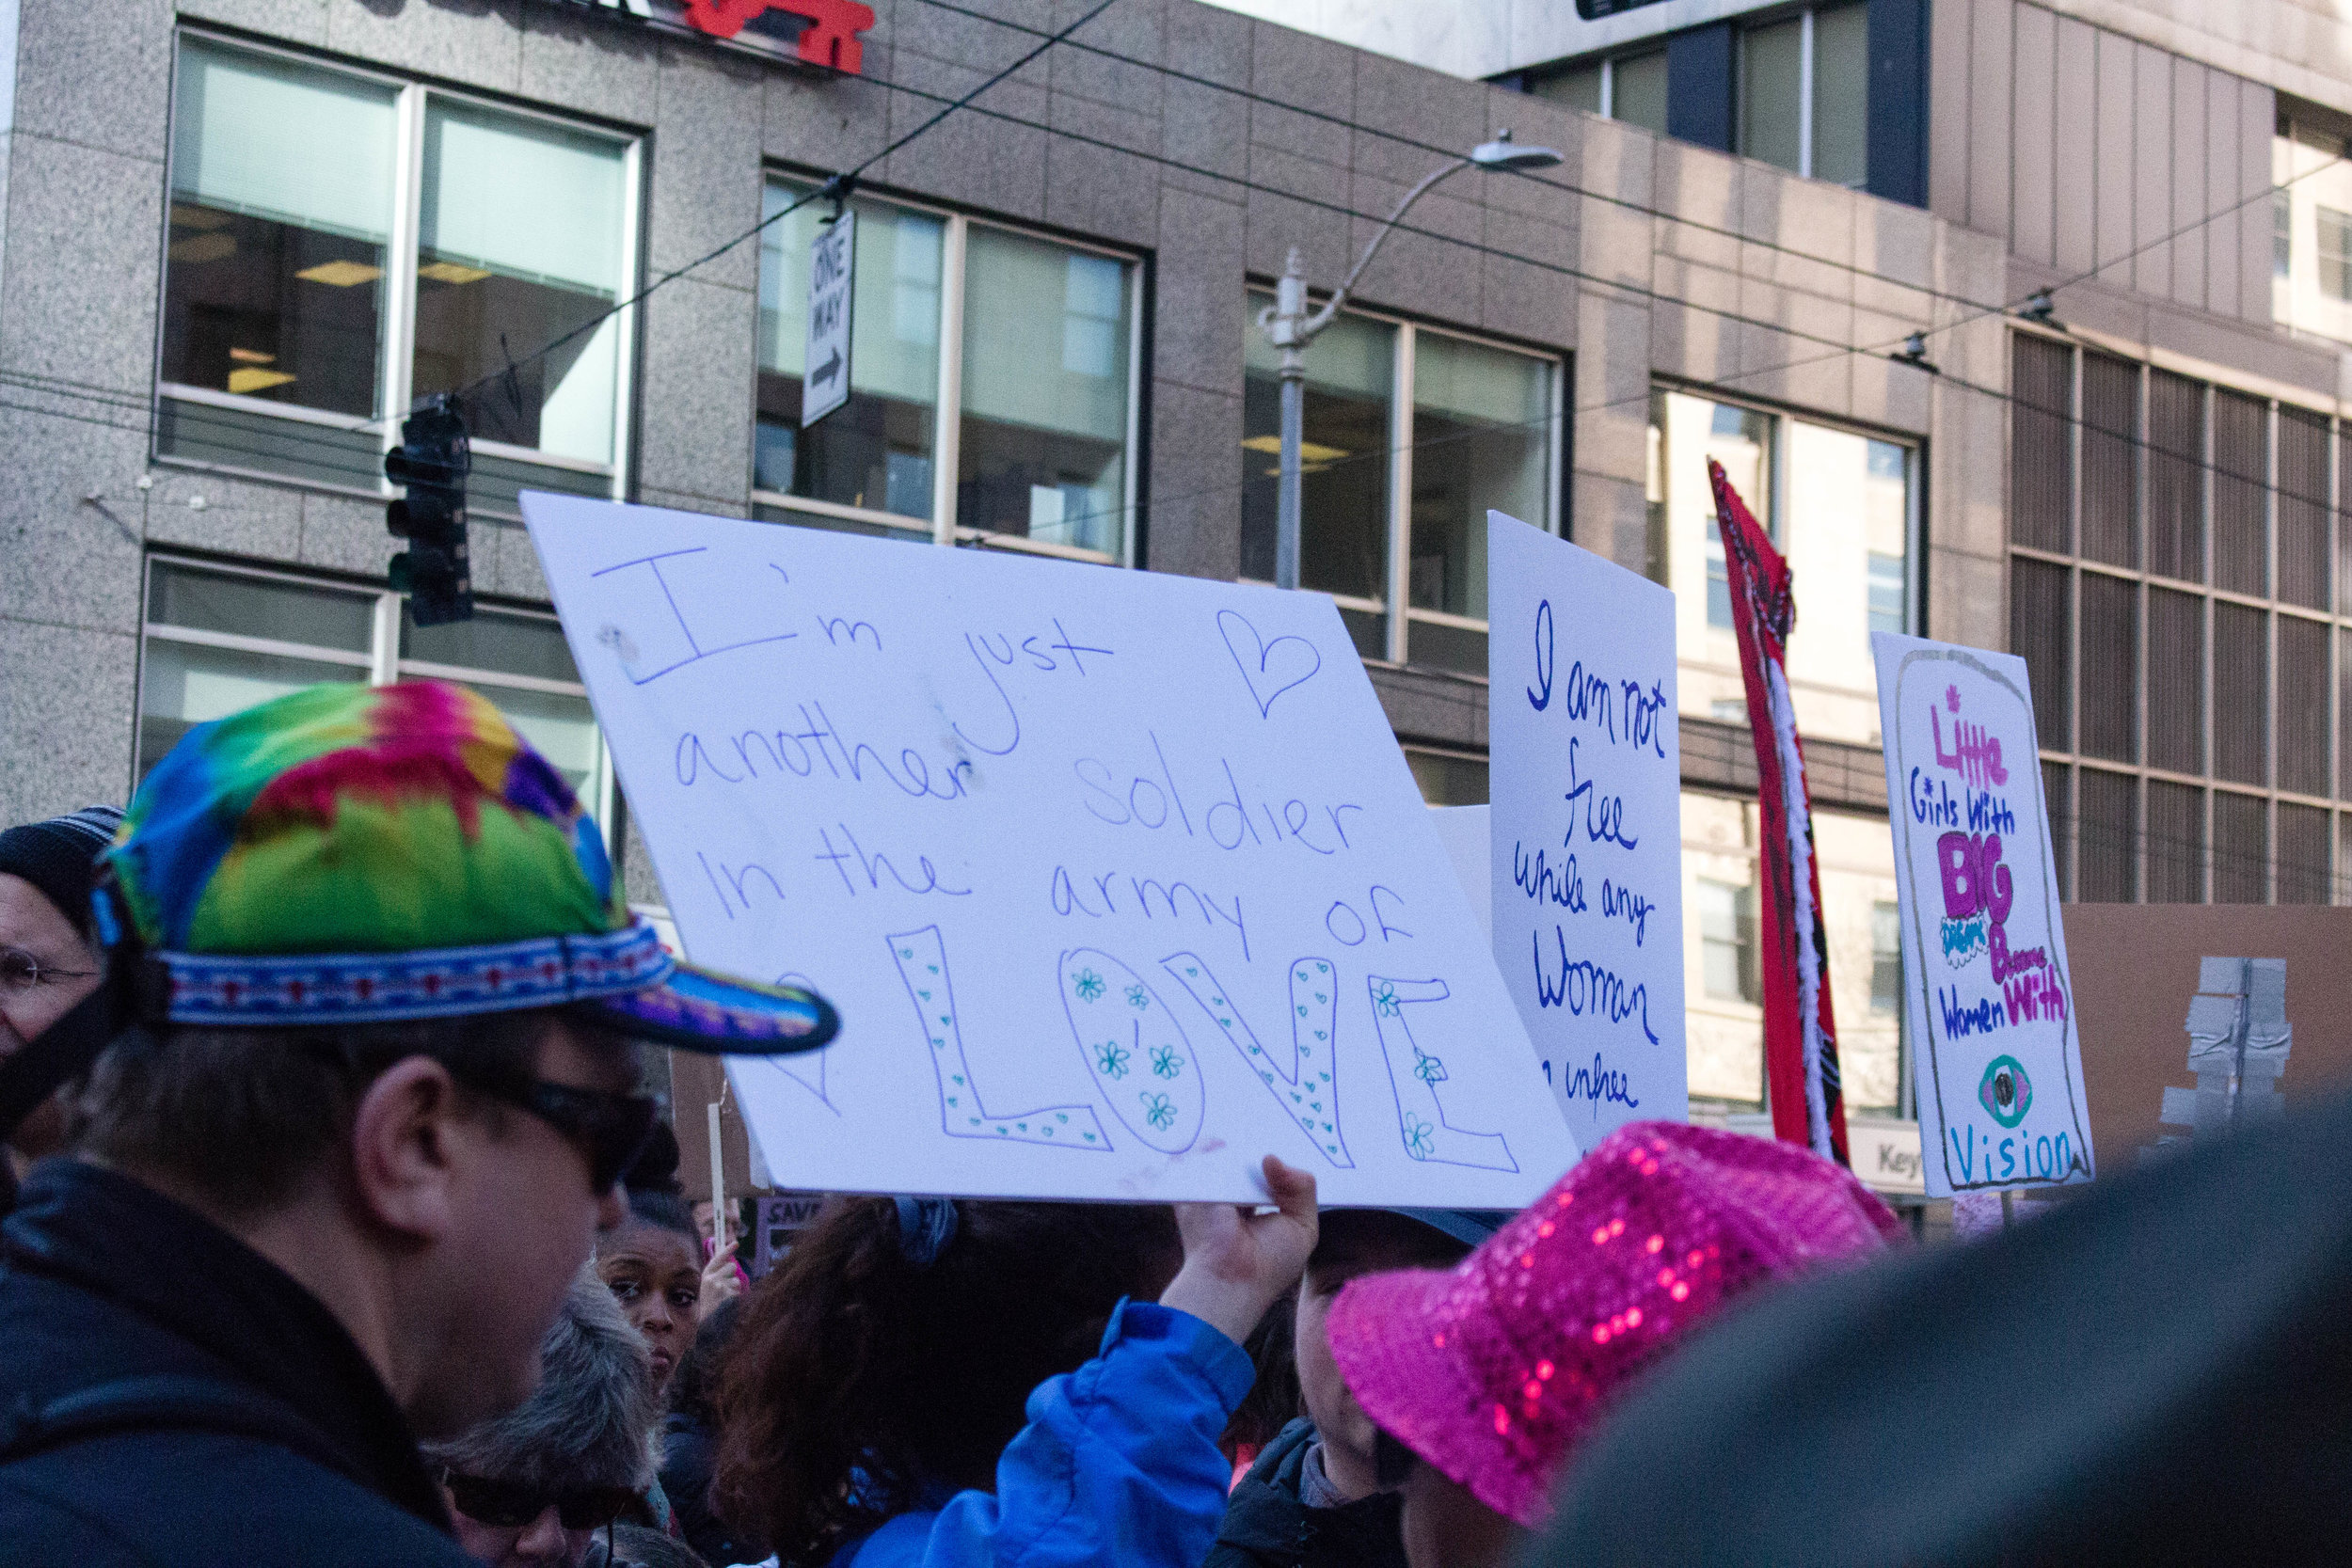 ONE
WAY
I'm just
another soldier
in the army of
LOVE
I am not
free
while any
Woman
unfree
Little
Girls With
BIG
DREAMS
Become
Women With
Vision
Key
SAVE